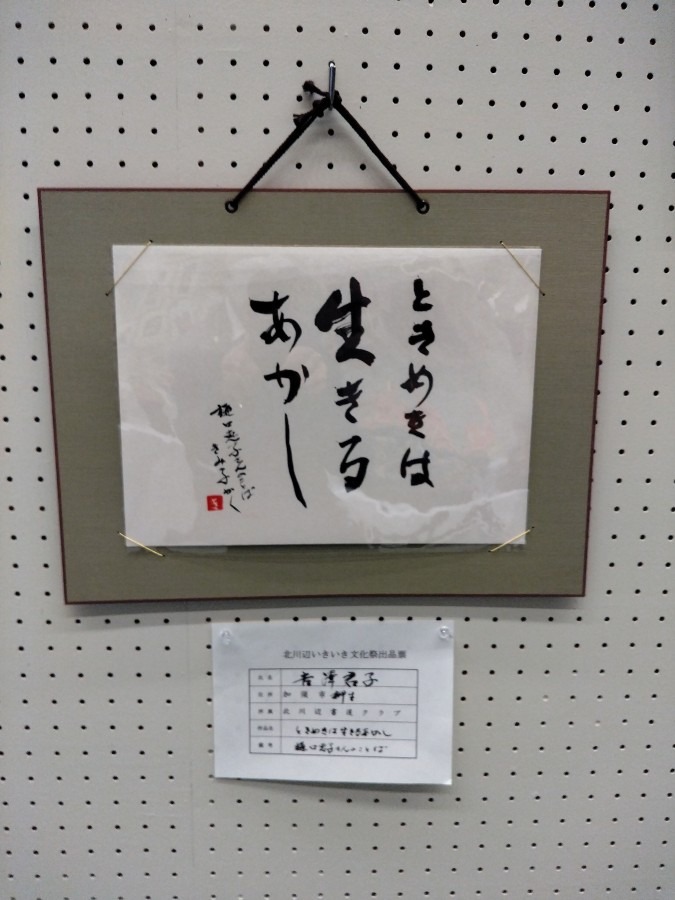 ときめきは
生きる
あかし
樋口恵子さんことば
きみ子かく
北川辺いきいき文化祭出品票
氏名 吉澤君子
住所 加須市柳生
所属 北川辺書道クラブ
作品名 ときめきは生きるあかし
備考 樋口恵子さんのことば